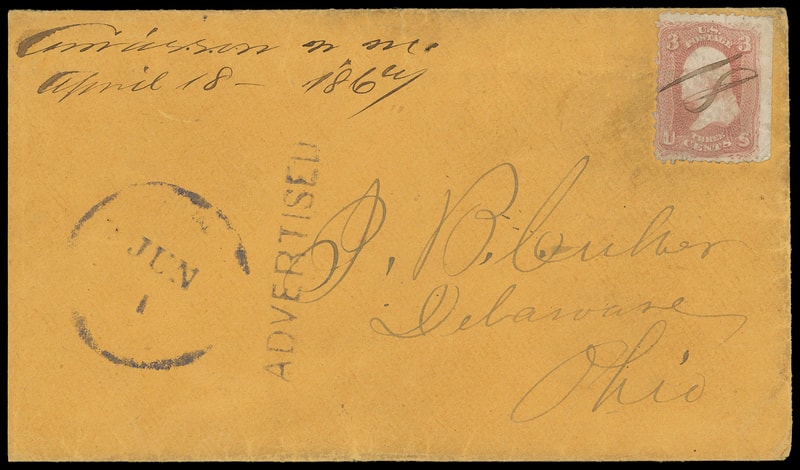 Cimarron n m.
April 18 – 1867
U.S.
POSTAGE
3 3
U S
THREE
CENTS
18
JUN
1
ADVERTISED
J. B. Culver
Delaware
Ohio